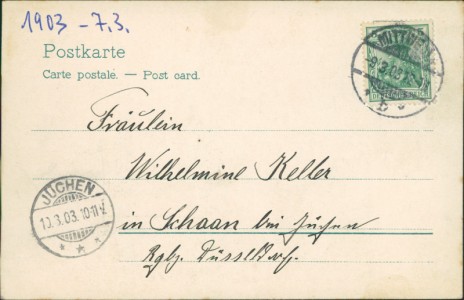 1903 - 7.3.
Postkarte
Carte postale. — Post card.
MITTWEIDA
9.3.03
Fräulein
Wilhelmine Keller
in Schaan bei Jüchen
Rgbz. Düsseldorf.
JÜCHEN
10.3.03.10-11V.